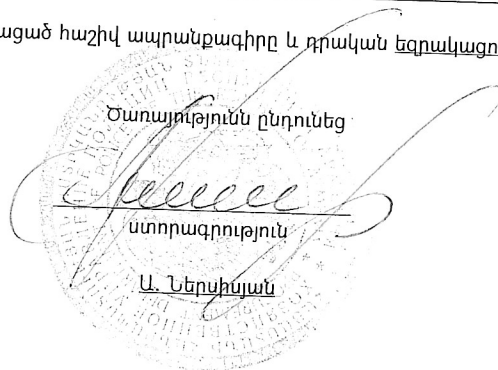 ացած հաշիվ ապրանքագիրը և դրական եզրակացո
Ծառայությունն ընդունեց
ստորագրություն
Ա. Ներսիսյան